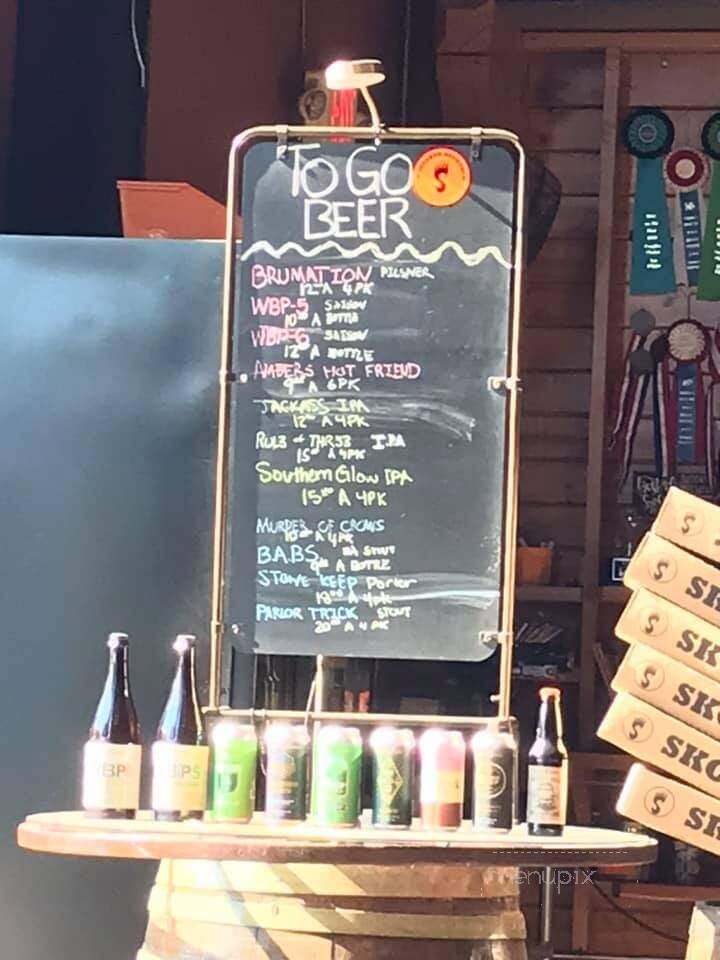 TO GO
BEER
BRUMATION PILSNER
12 A 4PK
WBP-5 SAISON
10 A BOTTLE
WBP-6 SAISON
12 A BOTTLE
AMBERS HOT FRIEND
9 A 6PK
JACKASS IPA
12 A 4PK
RULE OF THREE IPA
15 A 4PK
Southern Glow IPA
15 A 4PK
MURDER OF CROWS
10 A 4PK
B.A.B.S. BA STOUT
A BOTTLE
STONE KEEP Porter
18 A 4pk
PARLOR TRICK STOUT
20 A 4 PK
WBP
BP5
SK
SKO
SKO
SKO
SKO
SK
enupix